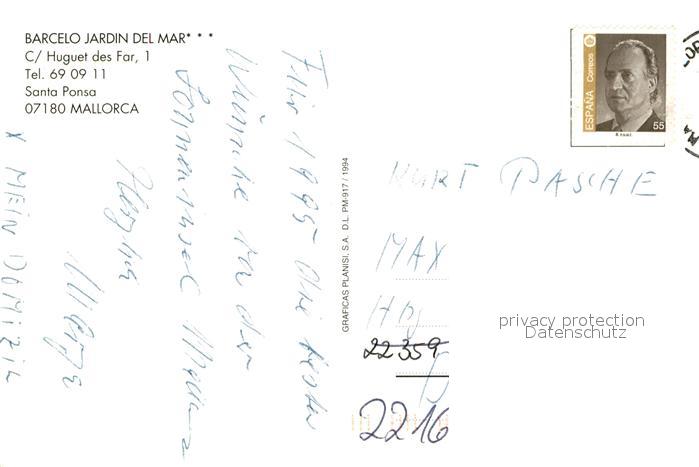 BARCELO JARDIN DEL MAR***
C/ Huguet des Far, 1
Tel. 69 09 11
Santa Ponsa
07180 MALLORCA
Für 1995 die besten
Wünsche von der
Sonneninsel
X MEIN DOMIZIL
GRAFICAS PLANISI, S.A. D.L. PM-917 / 1994
ESPAÑA
Correos
55
KURT PASCHE
MAX
22359
2216
privacy protection
Datenschutz